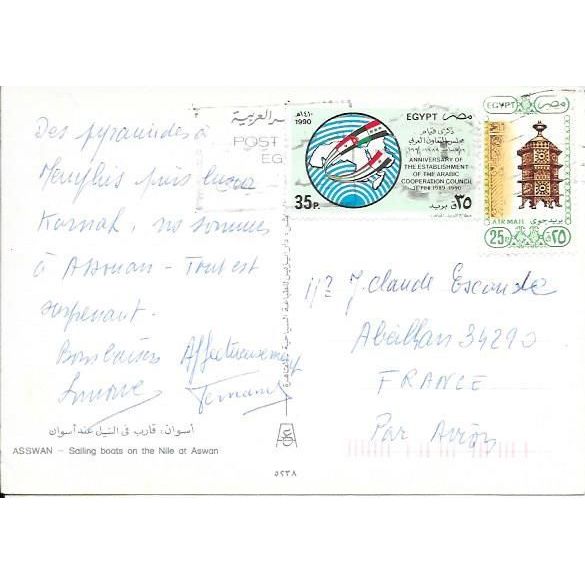 Des pyramides à
Memphis puis Luxor
Karnak, ns sommes
à Assouan - Tout est
surprenant.
Bons baisers Affectueusement
Simone Fernand
أسوان: قارب فى النيل عند أسوان
ASSWAN – Sailing boats on the Nile at Aswan
٥٢٣٨
POST
EG
١٤١٠هـ
1990
EGYPT مصر
ذكرى قيام
مجلس التعاون العربى
ANNIVERSARY OF THE
ESTABLISHMENT
OF THE ARABIC
COOPERATION COUNCIL
1989-1990
35P.
٣٥ق بريد
EGYPT مصر
AIR MAIL بريد جوى
25P ٢٥ق
J. Claude Escande
Abeilhan 34290
FRANCE
Par Avion